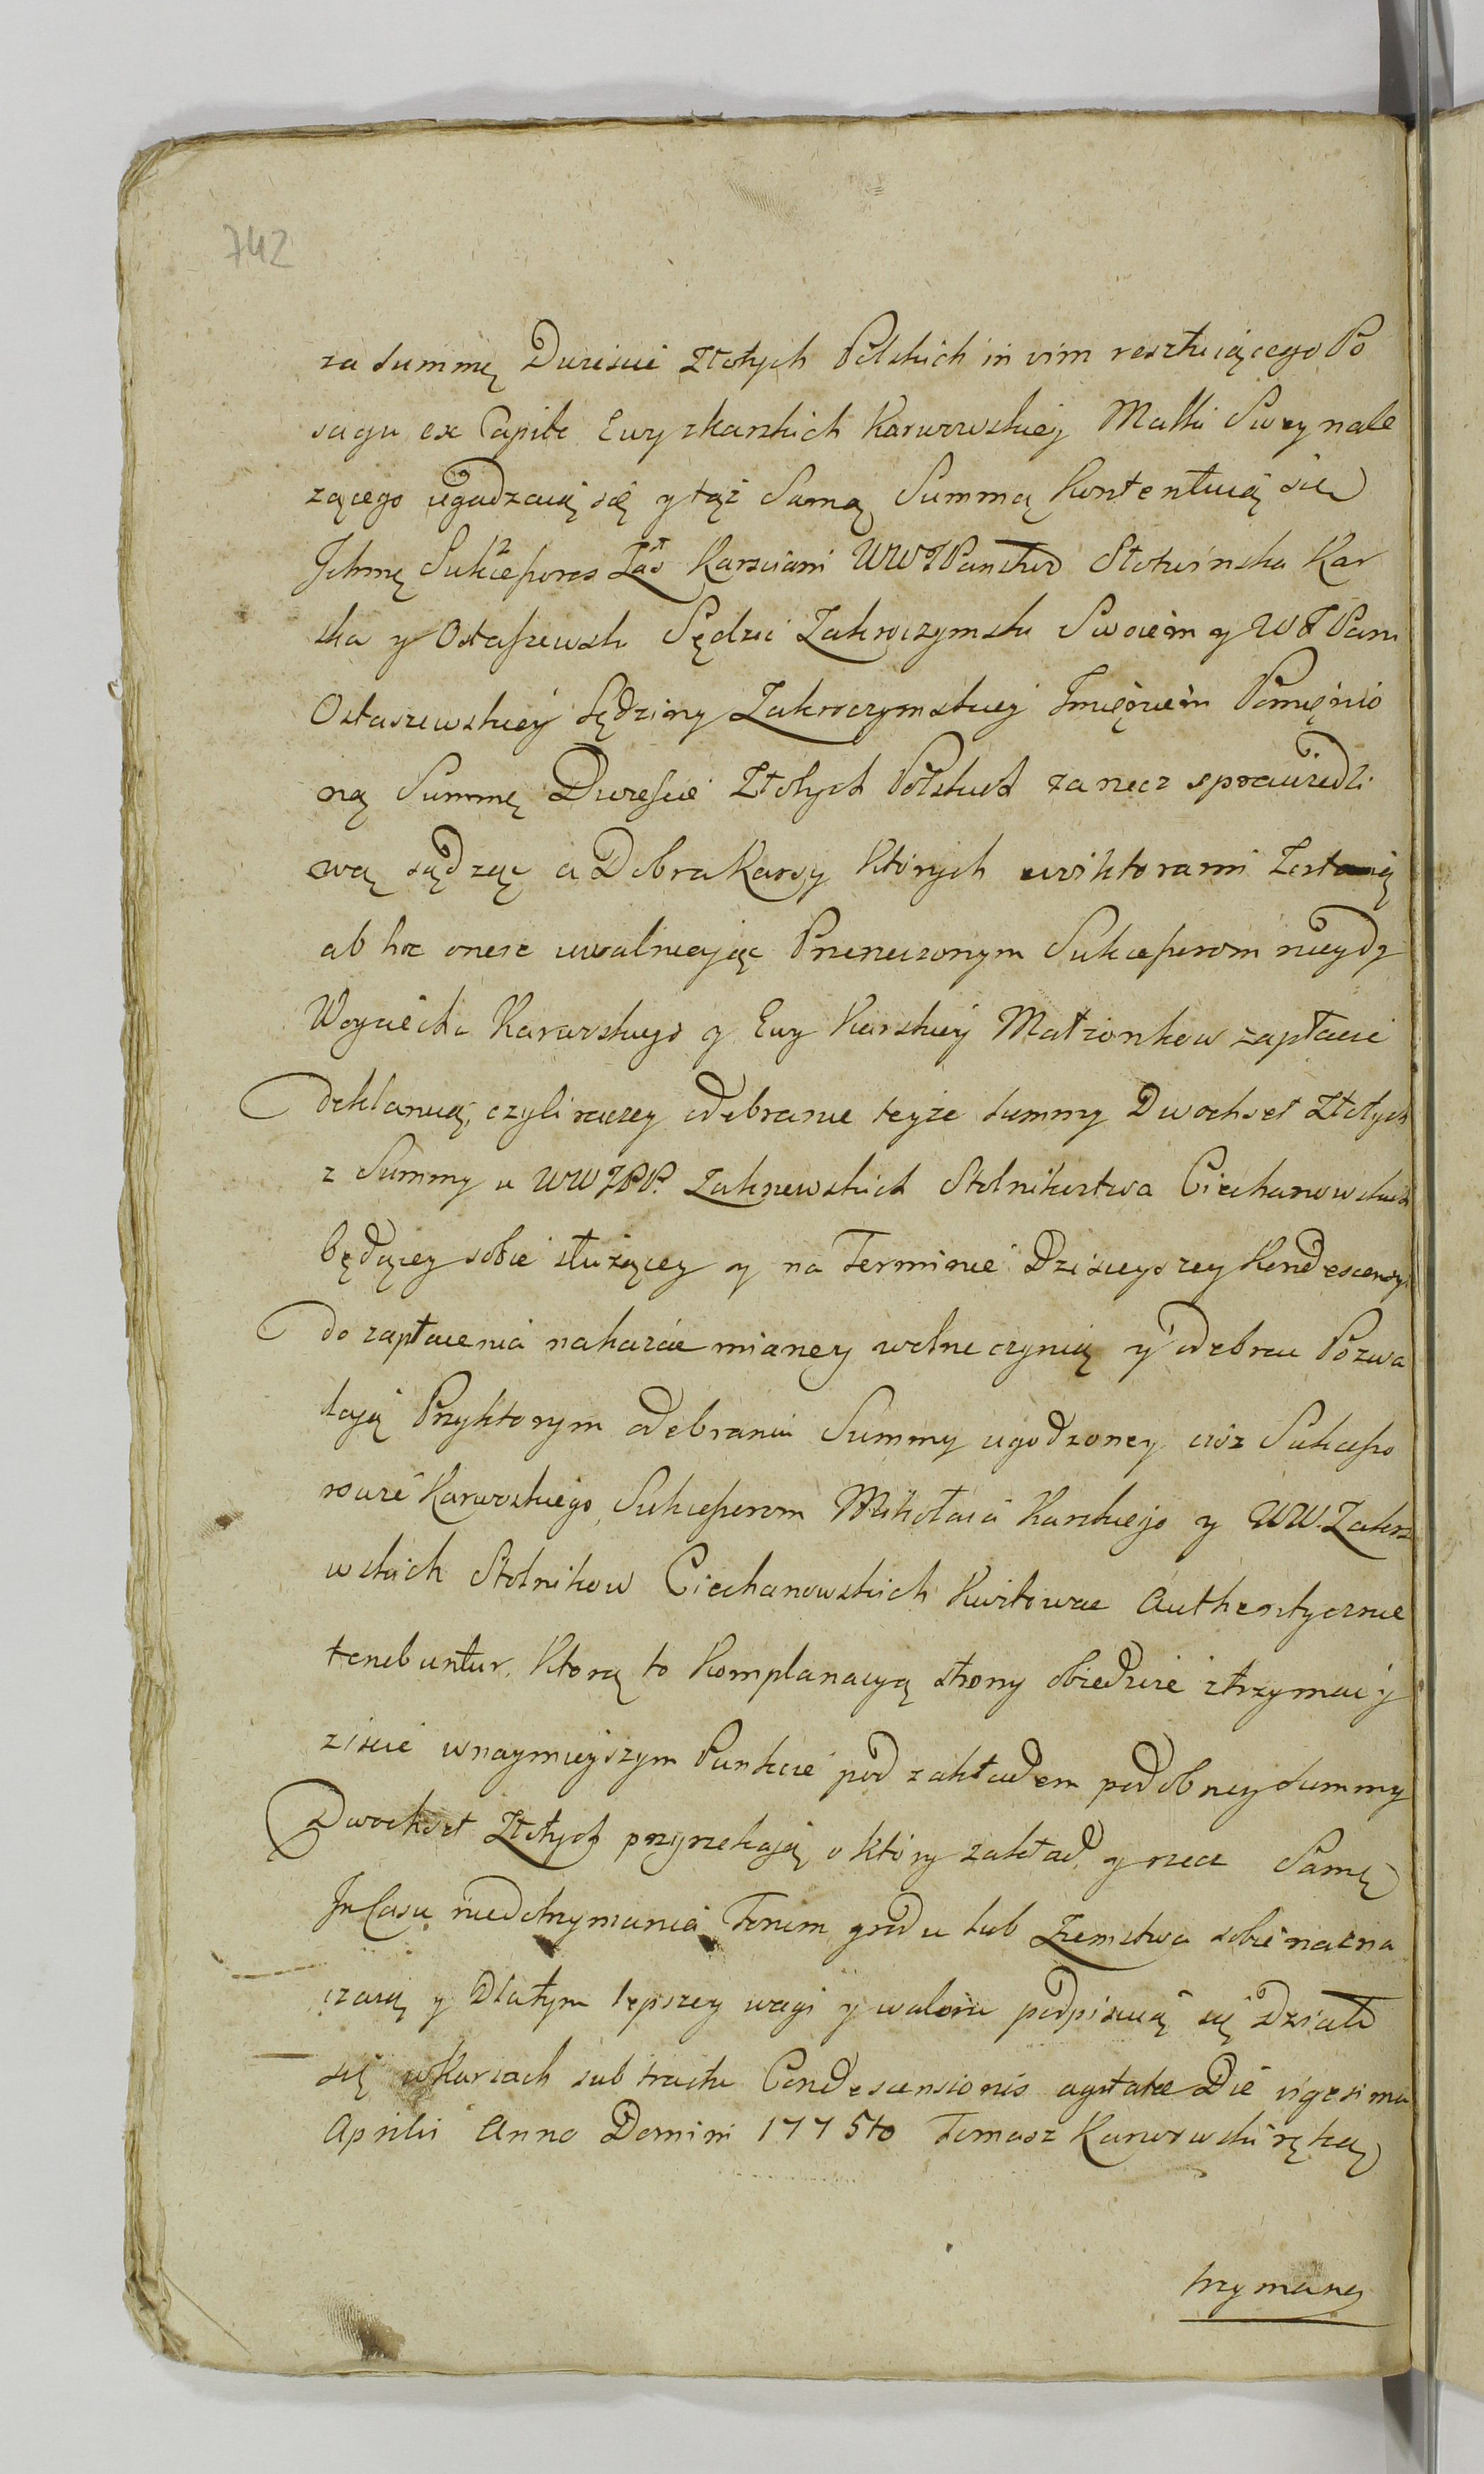 742
za summę Dwieście Złotych Polskich in vim resztuiącego Po
sagu ex Capite Ewy zkarskich Karwowskiey Matki Swey nale
żącego ugadzaią się y tąż Samą Summą kontentuią się
Ichmę Sukcessores Zaś Karsciani WWJPanowie Słotwinska Kar
ska y Ostaszewski Sędzia Zakroczymski Swoiem y WJPani
Ostaszewskiey Sędziny Zakroczymskiey Imięniem Pomięnio
ną Summę Dwieście Złotych Polskich za rzecz sprawiedli
wą sądząc a Dobra Karsy których wiktorami Zostaią
ab hoc onere uwalniaiąc Przerzeczonym Sukcessorom niegdy
Woyciecha Karwoskiego y Ewy Karskiey Małżonkow zapłacić
deklaruią, czyli raczey odebranie teyże summy Dwochset Złotych
z Summy u WWJPP. Zakrzewskich Stolnikostwa Ciechanowskich
będącey sobie służącey y na Terminie Dzisieyszey Kondescensyi
do zapłacenia nakazać mianey wolne czynią y odebrać Pozwa
laią Przyktorym odebraniu Summy ugodzoney ciż Sukcesso
rowie Karwoskiego, Sukcessorom Mikołaia Karskiego y WW. Zakrze
wskich Stolnikow Ciechanowskich kwitować Authentycznie
tenebuntur. Ktorą to Komplanacyą strony obiedwie strzymać y
ziścić wnaymnieyszym Punkcie pod zakładem podobney summy
Dwochset Złotych przyrzekaią o który zakład y rzecz Samę
In Casu niedotrzymania Forum grodu lub Ziemstwa sobie nazna
czaią y Dlatym lepszey wagi y waloru podpisuią się Działo
się wKarsach sub tractu Condescensionis agitatae Die vigesima
Aprilis Anno Domini 1775to Tomasz Karwowski ręką
trzymaną